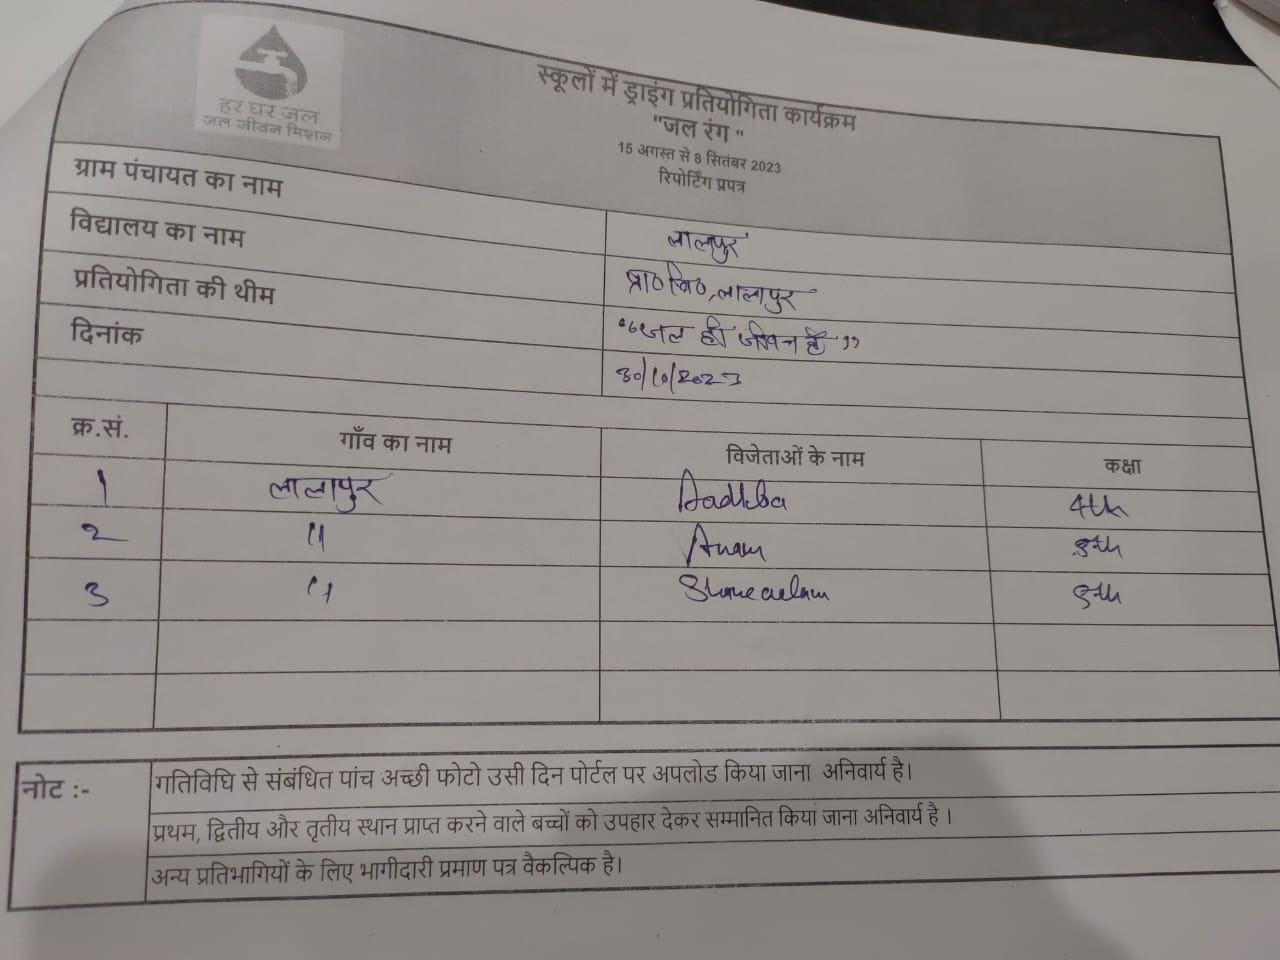 हर घर जल
जल जीवन मिशन
स्कूलों में ड्राइंग प्रतियोगिता कार्यक्रम
"जल रंग "
15 अगस्त से 8 सितंबर 2023
रिपोर्टिंग प्रपत्र
ग्राम पंचायत का नाम लालपुर
विद्यालय का नाम प्रा०वि०,लालापुर
प्रतियोगिता की थीम “जल ही जीवन है”
दिनांक
क्र.सं. गाँव का नाम विजेताओं के नाम कक्षा
1 लालापुर 4th
2 " Anam
3 "
नोट :- गतिविधि से संबंधित पांच अच्छी फोटो उसी दिन पोर्टल पर अपलोड किया जाना अनिवार्य है।
प्रथम, द्वितीय और तृतीय स्थान प्राप्त करने वाले बच्चों को उपहार देकर सम्मानित किया जाना अनिवार्य है ।
अन्य प्रतिभागियों के लिए भागीदारी प्रमाण पत्र वैकल्पिक है।